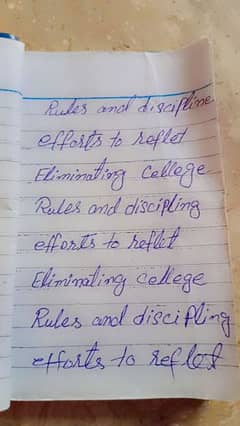 Rules and discipline
efforts to reflet
Eliminating College
Rules and discipling
efforts to reflet
Eliminating College
Rules and discipling
efforts to reflet